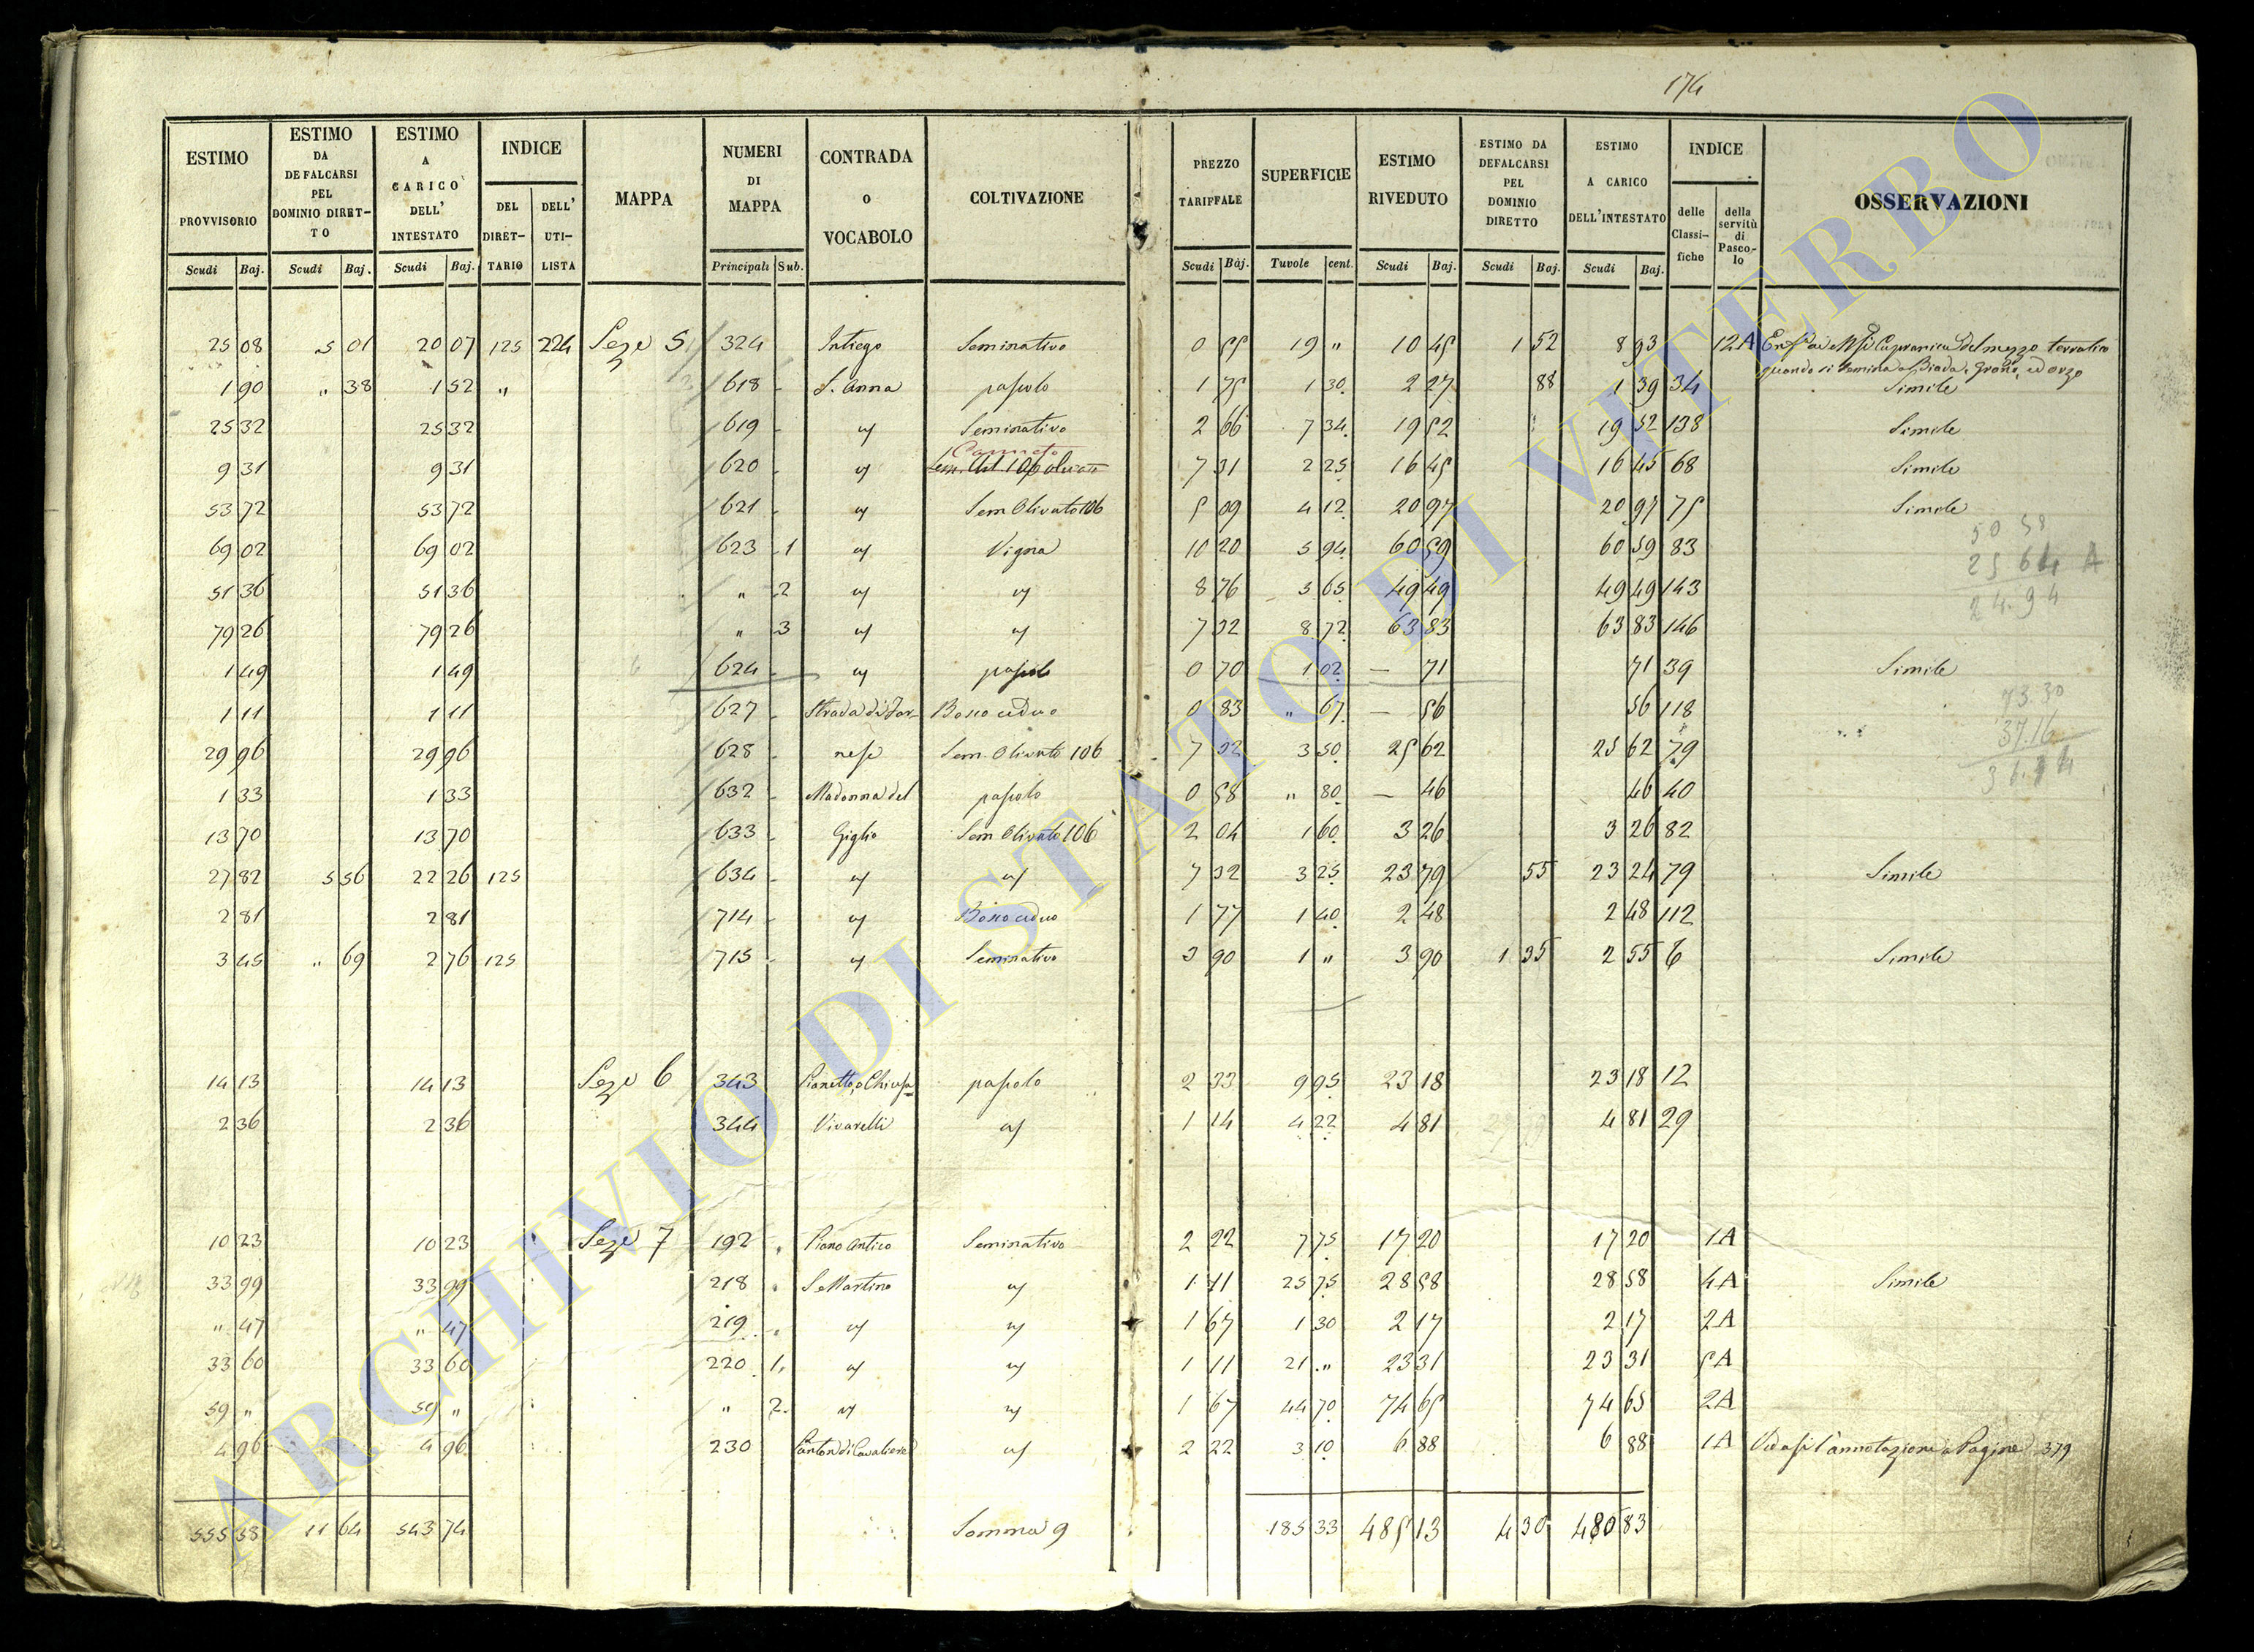 174
ESTIMO PROVVISORIO | ESTIMO DA DEFALCARSI PEL DOMINIO DIRET-TO | ESTIMO A CARICO DELL' INTESTATO | INDICE DEL DIRET-TARIO | DELL' UTI-LISTA | MAPPA | NUMERI DI MAPPA | CONTRADA O VOCABOLO | COLTIVAZIONE | PREZZO TARIFFALE | SUPERFICIE | ESTIMO RIVEDUTO | ESTIMO DA DEFALCARSI PEL DOMINIO DIRETTO | ESTIMO A CARICO DELL'INTESTATO | INDICE delle Classi-fiche | della servitù di Pasco-lo | OSSERVAZIONI
Scudi Baj. | Scudi Baj. | Scudi Baj. | Principali Sub. | Scudi Baj. | Tavole cent. | Scudi Baj. | Scudi Baj. | Scudi Baj.
25 08 | 5 01 | 20 07 | 125 | 224 | Seze 5 | 324 | Intiego | Seminativo | 0 55 | 19 " | 10 45 | 1 52 | 8 93 | 12A | del mezzo terratico
quando si semina a Biada, grano, ed orzo
1 90 | " 38 | 1 52 | " | 618 | S. Anna | pascolo | 1 75 | 1 30 | 2 27 | 88 | 1 39 | 34 | Simile
25 32 | 25 32 | 619 | " | Seminativo | 2 66 | 7 34 | 19 52 | 19 52 | 138 | Simile
Canneto
9 31 | 9 31 | 620 | " | Sem. Olivato 106 | 7 31 | 2 25 | 16 45 | 16 45 | 68 | Simile
53 72 | 53 72 | 621 | " | Sem Olivato 106 | 5 09 | 4 12 | 20 97 | 20 97 | 75 | Simile
69 02 | 69 02 | 623 1 | " | Vigna | 10 20 | 5 94 | 60 59 | 60 59 | 83
50 58
25 64 A
24.94
51 36 | 51 36 | " 2 | " | " | 8 76 | 5 65 | 49 49 | 49 49 | 143
79 26 | 79 26 | " 3 | " | " | 7 32 | 8 72 | 63 83 | 63 83 | 146
1 49 | 1 49 | 624 | " | pascolo | 0 70 | 1 02 | — 71 | 71 | 39 | Simile
1 11 | 1 11 | 627 | Strada di Far- | Bosco ceduo | 0 83 | " 67 | — 56 | 56 | 118
73 30
37.16
29 96 | 29 96 | 628 | nese | Sem. Olivato 106 | 7 32 | 3 50 | 25 62 | 25 62 | 79
1 33 | 1 33 | 632 | Madonna del | pascolo | 0 58 | " 80 | — 46 | 46 | 40
13 70 | 13 70 | 633 | Giglio | Sem Olivato 106 | 2 04 | 1 60 | 3 26 | 3 26 | 82
27 82 | 5 56 | 22 26 | 125 | 634 | " | " | 7 32 | 3 25 | 23 79 | 55 | 23 24 | 79 | Simile
2 81 | 2 81 | 714 | " | Bosco ceduo | 1 77 | 1 40 | 2 48 | 2 48 | 112
3 45 | " 69 | 2 76 | 125 | 715 | " | Seminativo | 3 90 | 1 " | 3 90 | 1 35 | 2 55 | 6 | Simile
14 13 | 14 13 | Seze 6 | 343 | Pianetto, o Chiusa | pascolo | 2 33 | 9 95 | 23 18 | 23 18 | 12
2 36 | 2 36 | 344 | Vivarelli | " | 1 14 | 4 22 | 4 81 | 4 81 | 29
10 23 | 10 23 | Seze 7 | 192 | Piano Antico | Seminativo | 2 22 | 7 75 | 17 20 | 17 20 | 1A
33 99 | 33 99 | 218 | S. Martino | " | 1 11 | 25 75 | 28 58 | 28 58 | 4A | Simile
" 47 | " 47 | 219 | " | " | 1 67 | 1 30 | 2 17 | 2 17 | 2A
33 60 | 33 60 | 220 1 | " | " | 1 11 | 21 " | 23 31 | 23 31 | 5A
59 " | 59 " | " 2 | " | " | 1 67 | 44 70 | 74 65 | 74 65 | 2A
4 96 | 4 96 | 230 | Canton di Cavaliere | " | 2 22 | 3 10 | 6 88 | 6 88 | 1A | Vedasi l'annotazione a Pagine 379
555 38 | 11 64 | 543 74 | Somma 9 | 185 33 | 485 13 | 4 30 | 480 83
ARCHIVIO DI STATO DI VITERBO